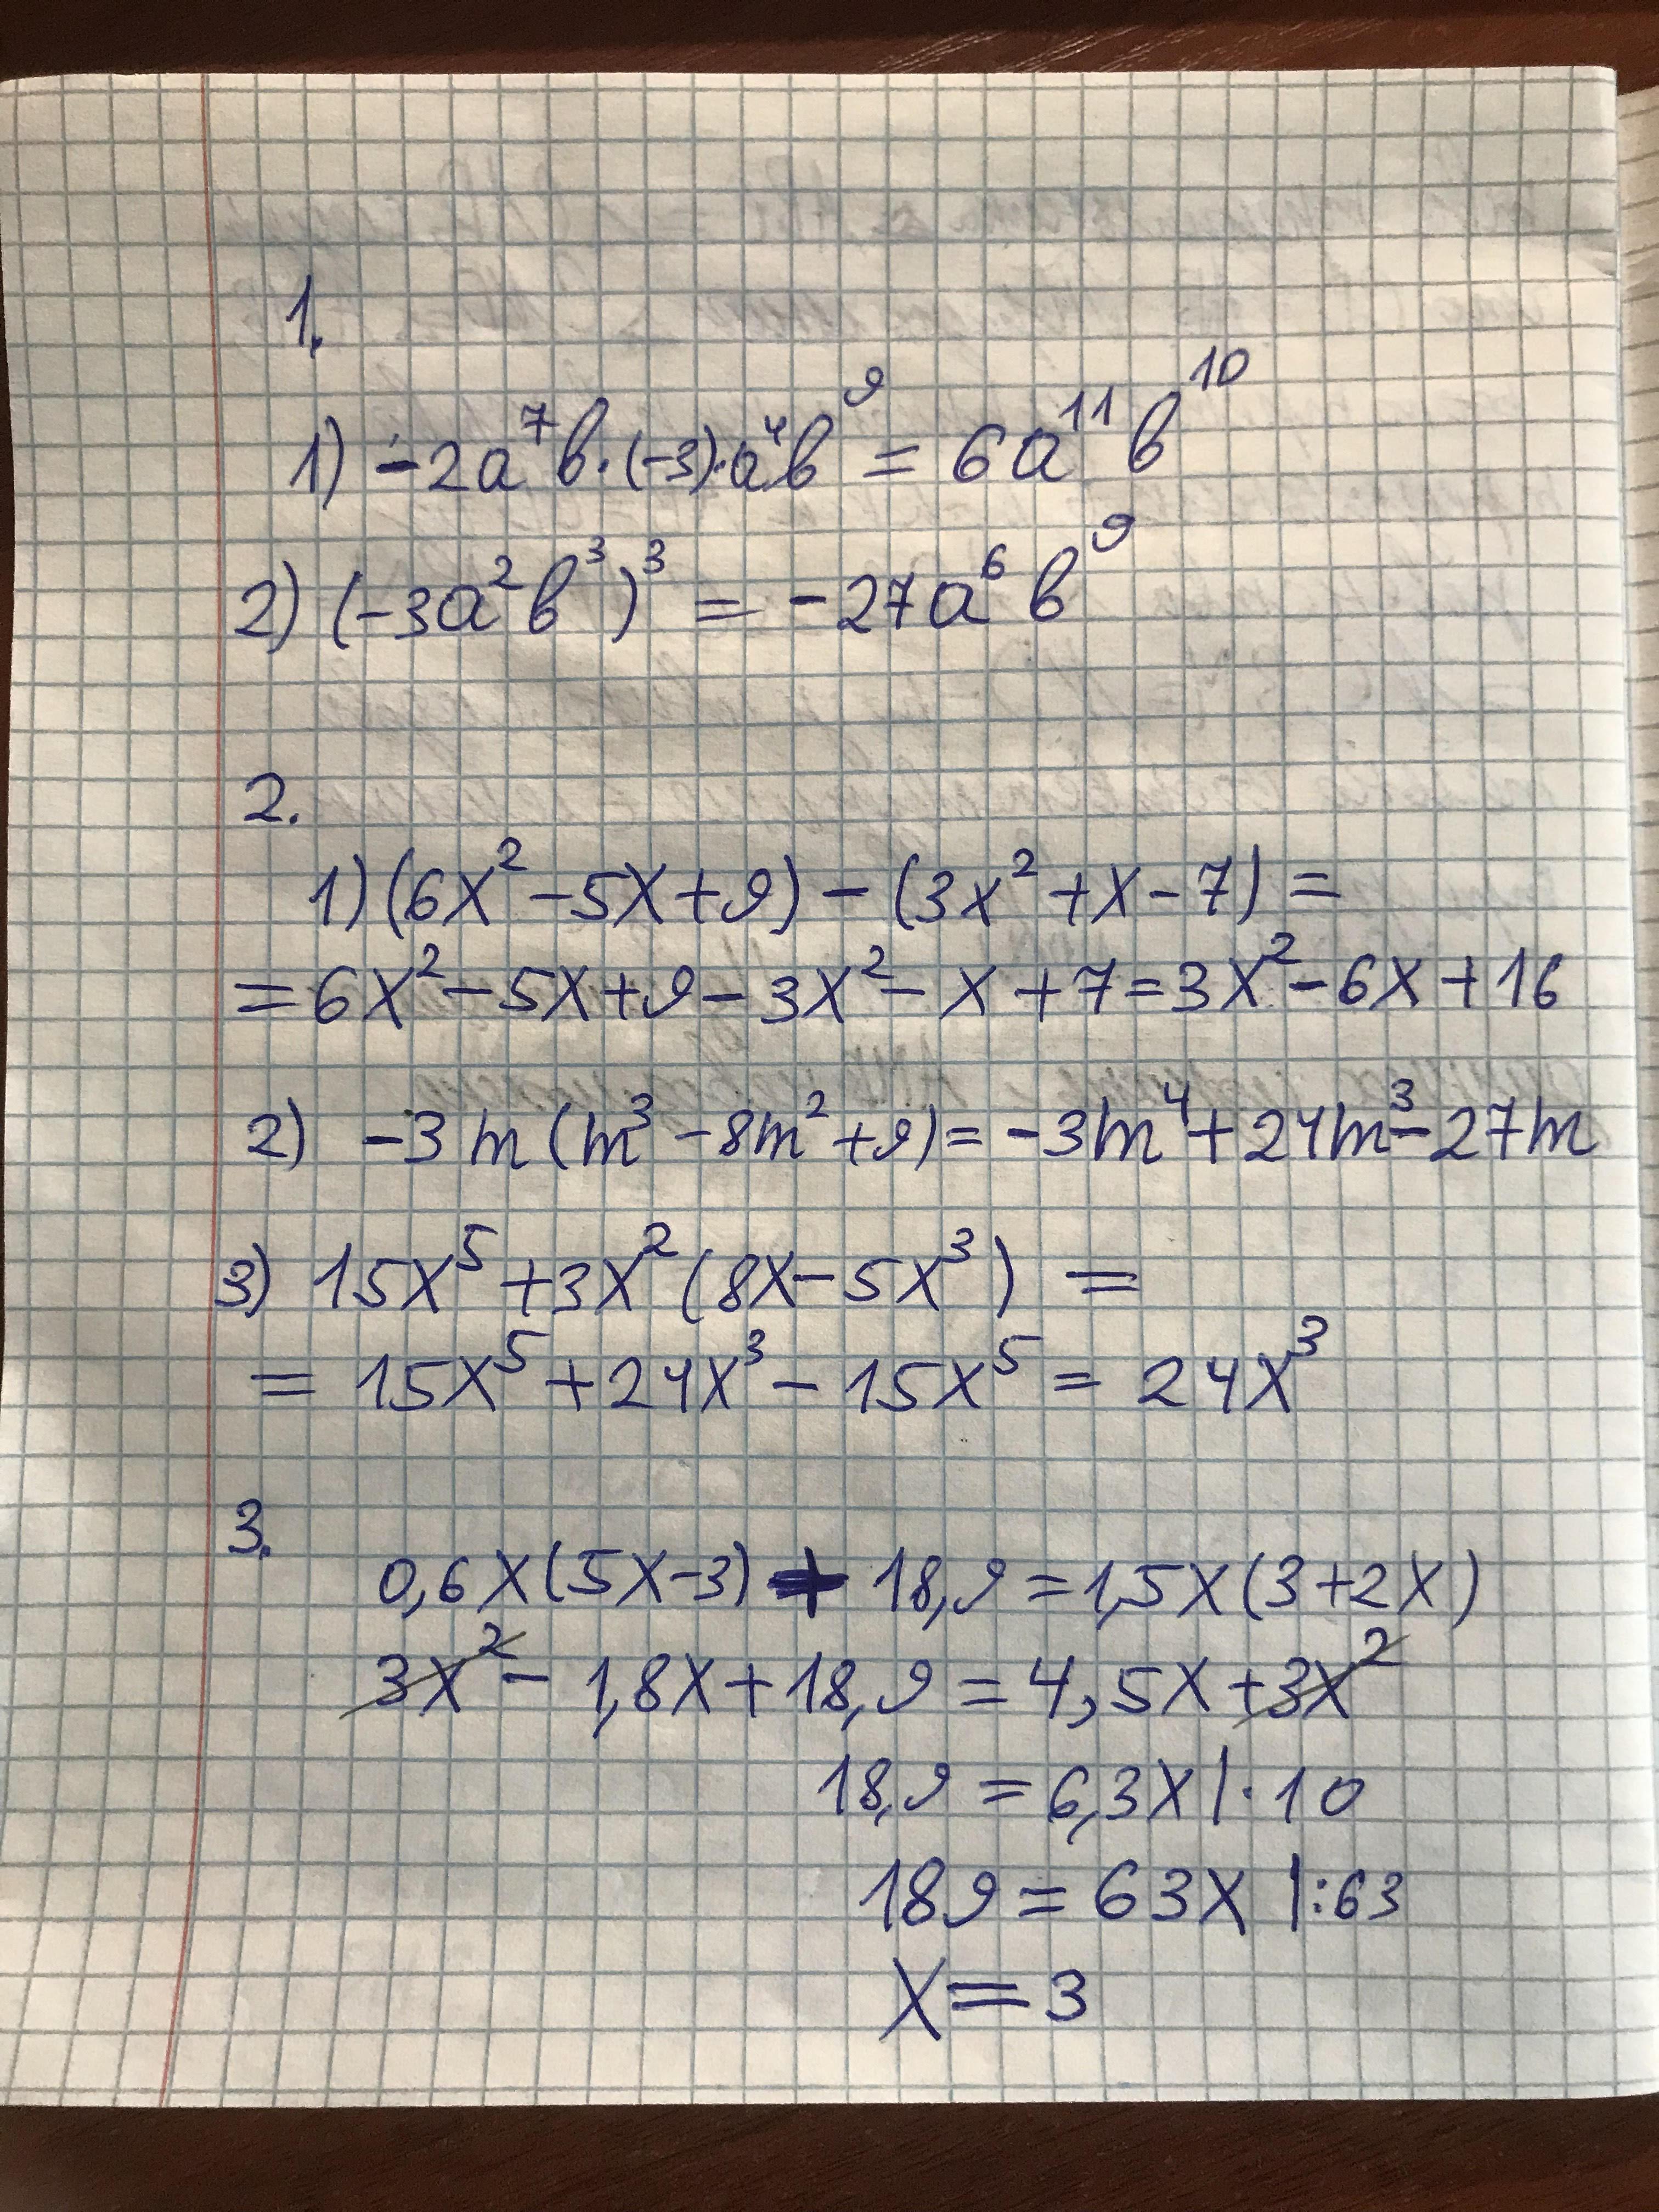 1.
1) -2a⁷b·(-3)·a⁴b⁹ = 6a¹¹b¹⁰
2) (-3a²b³)³ = -27a⁶b⁹
2.
1) (6x²-5x+9) - (3x²+x-7) =
= 6x²-5x+9-3x²-x+7=3x²-6x+16
2) -3m(m³-8m²+9)= -3m⁴+24m³-27m
3) 15x⁵+3x²(8x-5x³) =
= 15x⁵+24x³-15x⁵ = 24x³
3.
0,6x(5x-3) + 18,9 =1,5x(3+2x)
3x² - 1,8x+18,9 = 4,5x+3x²
18,9 = 6,3x |·10
189 = 63x |:63
x = 3